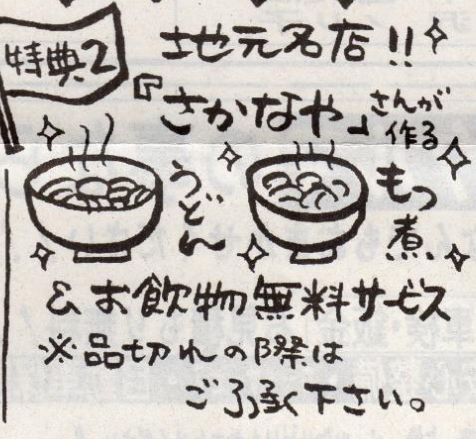 特典2
地元名店!!
『さかなや』さんが作る
うどん
もつ煮
&お飲物無料サービス
※品切れの際は
ご了承下さい。